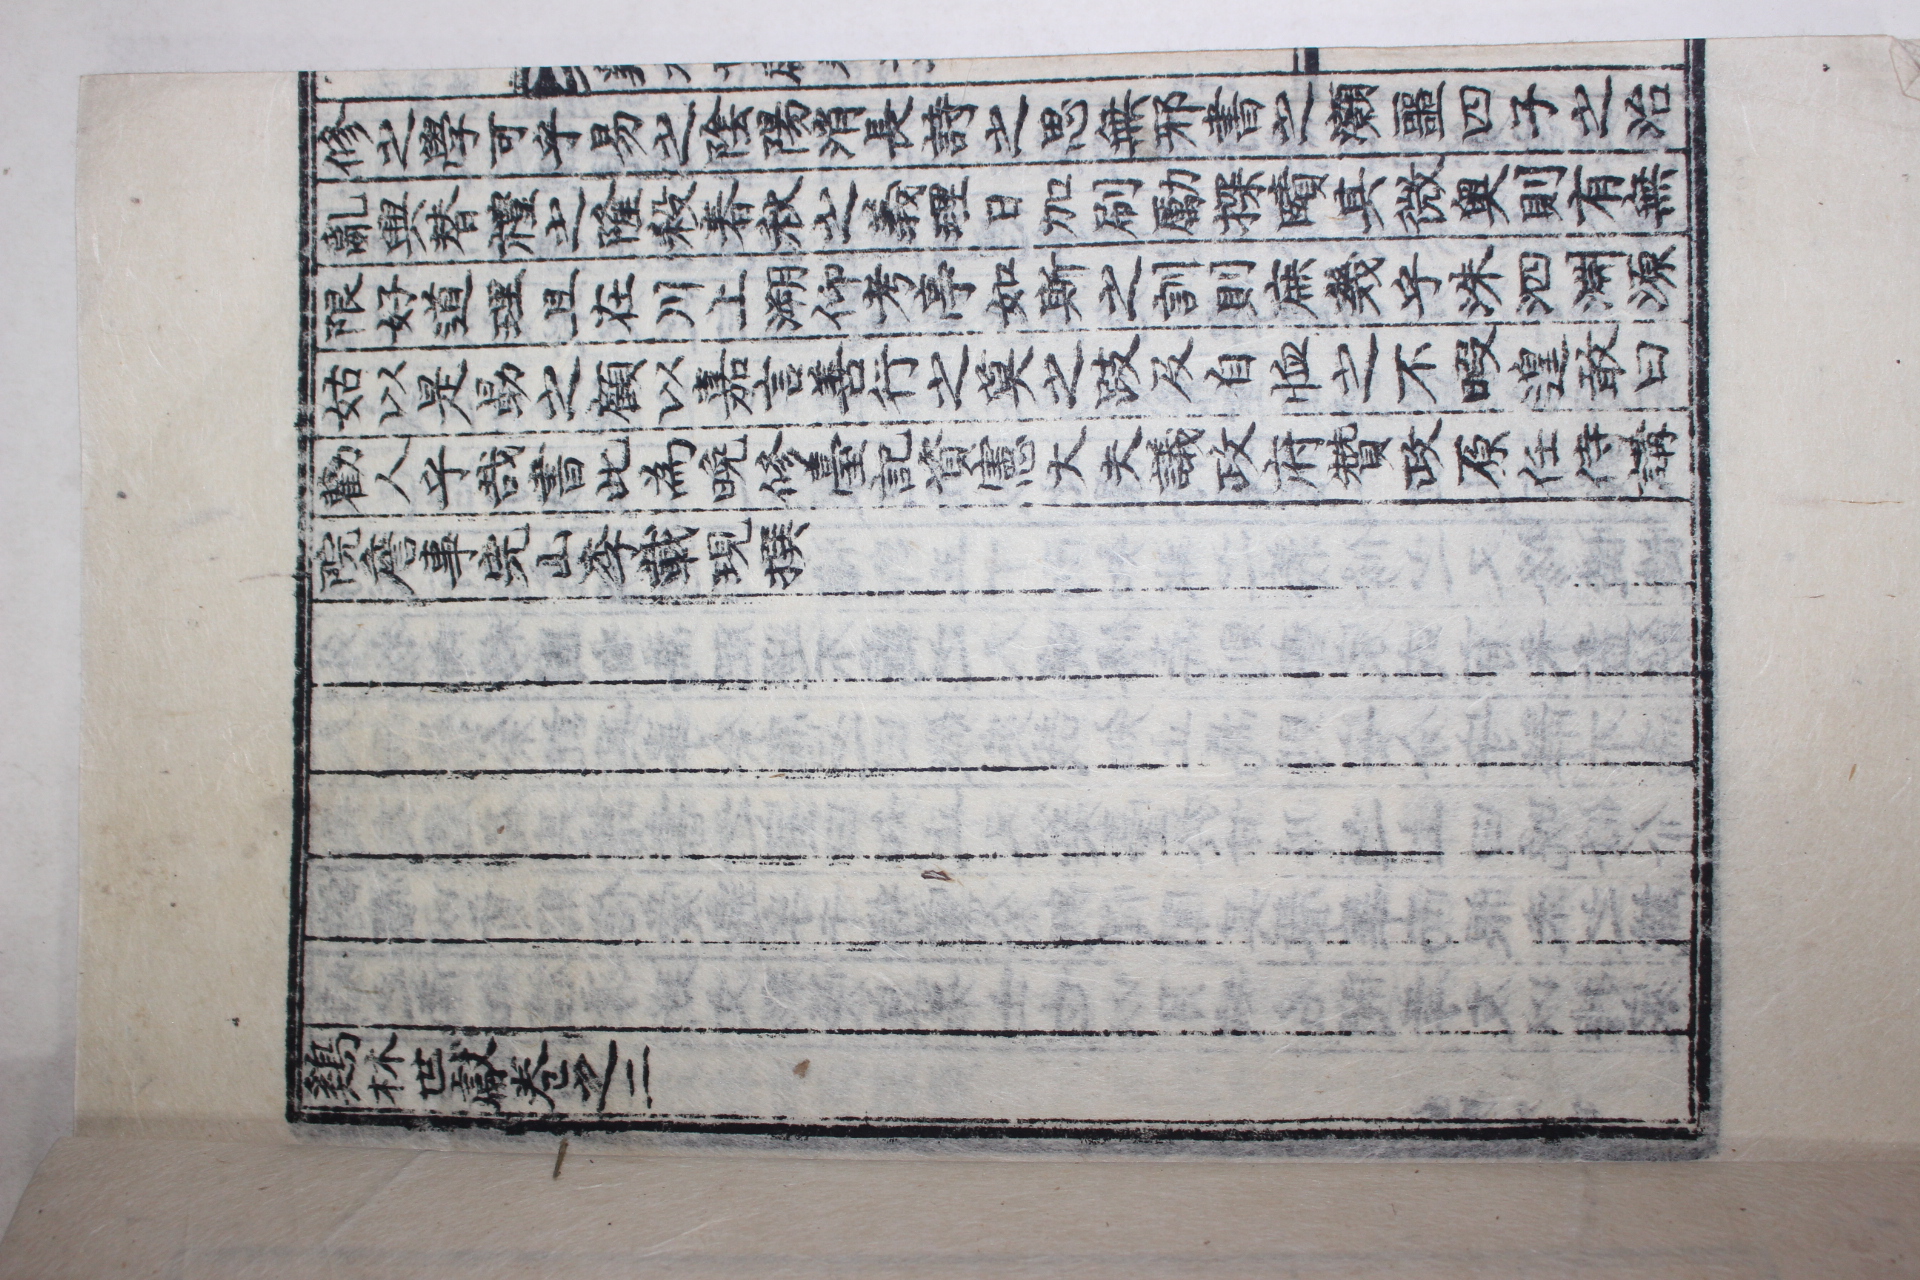 修之學可乎易之陰陽消長詩之思無邪書之灝噩四子之治
亂興替禮之隆殺春秋之義理日加刷勵探賾其微奧則有無
限好道理且在川上溯伊考亭如斯之訓則庶幾乎洙泗淵源
姑以是勗之顧以嘉言善行之莫之跂及自恤之不暇遑敢曰
勸人乎哉書此為晩修臺記資憲大夫議政府贊政原任侍講
院詹事完山李載現撰
鷄林世獻卷之二